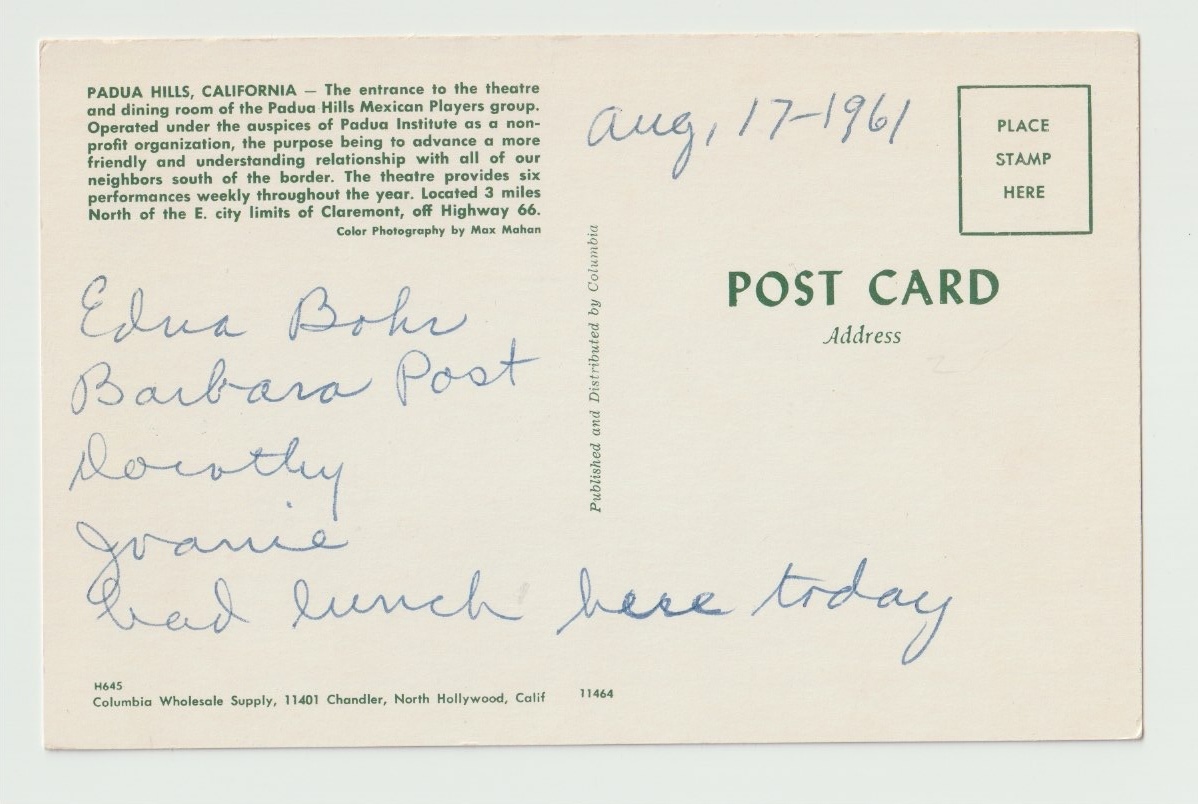 PADUA HILLS, CALIFORNIA — The entrance to the theatre
and dining room of the Padua Hills Mexican Players group.
Operated under the auspices of Padua Institute as a non-
profit organization, the purpose being to advance a more
friendly and understanding relationship with all of our
neighbors south of the border. The theatre provides six
performances weekly throughout the year. Located 3 miles
North of the E. city limits of Claremont, off Highway 66.
Color Photography by Max Mahan
Aug, 17-1961
PLACE
STAMP
HERE
POST CARD
Address
Published and Distributed by Columbia
Edna Bohr
Barbara Post
Dorothy
Joanie
had lunch here today
H645
Columbia Wholesale Supply, 11401 Chandler, North Hollywood, Calif
11464